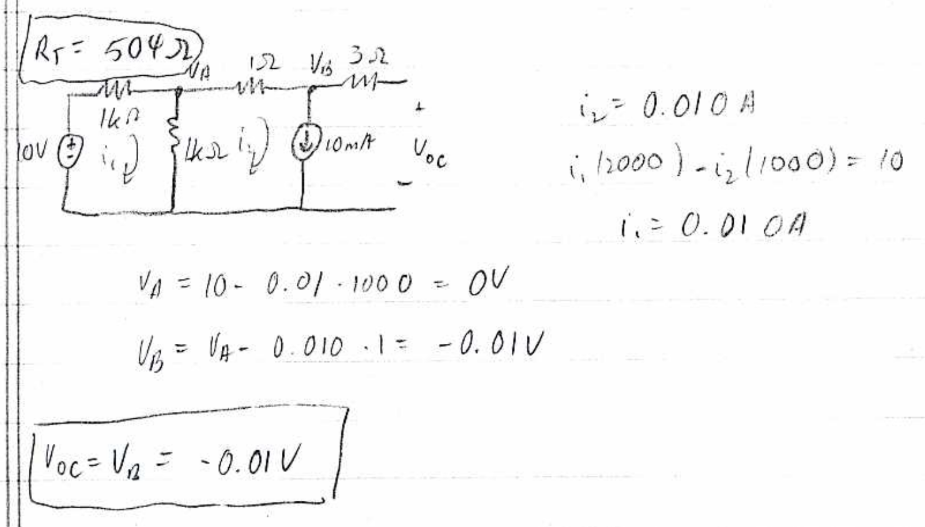 R_T = 504Ω
V_A 1Ω V_B 3Ω
1kΩ
10V i₁ 1kΩ i₂ 10mA
+
V_OC
-
i₂ = 0.010 A
i₁(2000) - i₂(1000) = 10
i₁ = 0.010A
V_A = 10 - 0.01 · 1000 = 0V
V_B = V_A - 0.010 · 1 = -0.01V
V_OC = V_B = -0.01V